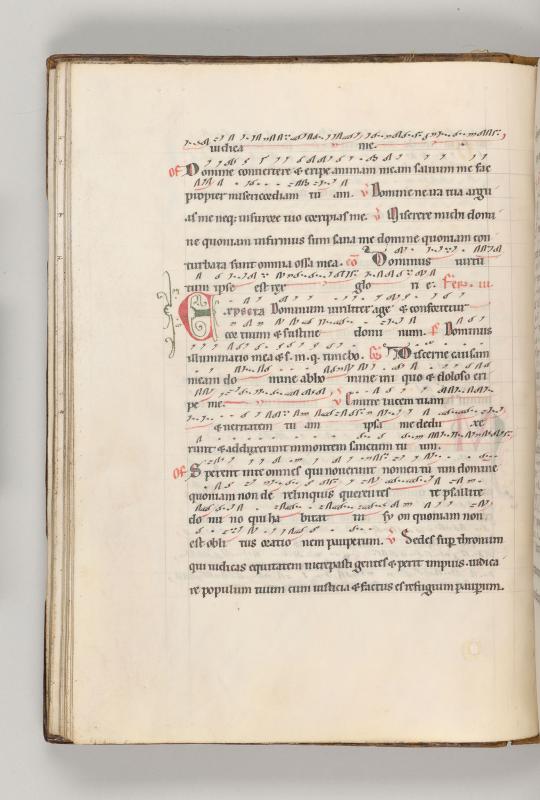 iudica me.
of Domine convertere & eripe animam meam salvum me fac
propter misericordiam tu am. v Domine ne in ira tua argu
as me neq; in furore tuo corripias me. v Miserere michi domi
ne quoniam infirmus sum sana me domine quoniam con
turbata sunt omnia ossa mea. co Dominus virtu
tum ipse est rex glo ri e. fer. iii.
Expecta Dominum viriliter age & confortetur
cor tuum & sustine domi num. Dominus
illuminatio mea & s. m. q. timebo. Discerne causam
meam do mine ab ho mine ini quo & doloso eri
pe me. v Emitte lucem tuam
& veritatem tu am ipsa me dedu xe
runt & adduxerunt in montem sanctum tu um.
of Sperent in te omnes qui noverunt nomen tu um domine
quoniam non de relinquis querentes te psallite
do mi no qui ha bitat in sy on quoniam non
est obli tus oratio nem pauperum. v Sedes sup thronum
qui iudicas equitatem increpasti gentes & periit impius. iudica
re populum tuum cum iusticia & factus es refugium pauperum.